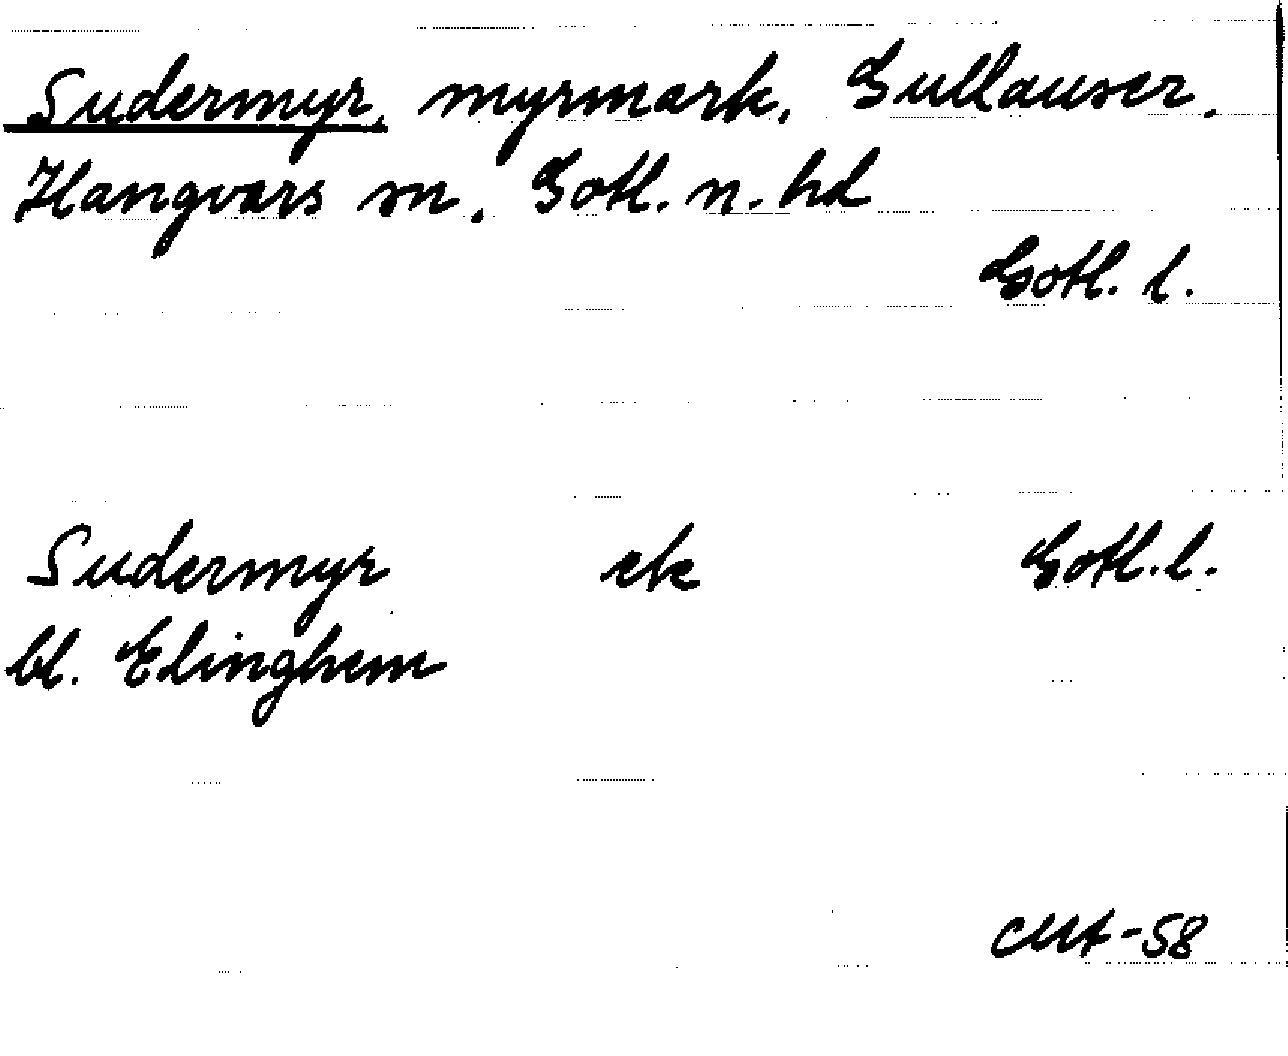 Sudermyr, myrmark, Gullauser.
Hangvars sn, Gotl. n. hd
Gotl. l.
Sudermyr ek Gotl. l.
bl. Elinghem
CMA-58